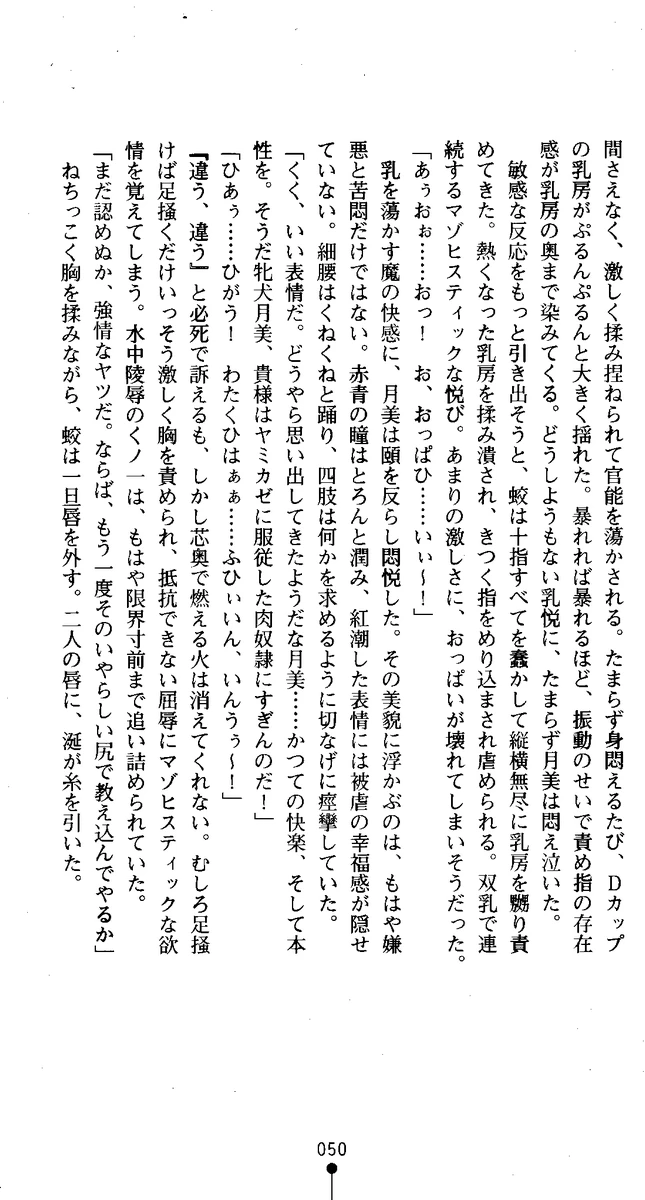 間さえなく、激しく揉み捏ねられて官能を蕩かされる。たまらず身悶えるたび、Dカップ
の乳房がぷるんぷるんと大きく揺れた。暴れれば暴れるほど、振動のせいで責め指の存在
感が乳房の奥まで染みてくる。どうしようもない乳悦に、たまらず月美は悶え泣いた。
敏感な反応をもっと引き出そうと、蛟は十指すべてを蠢かして縦横無尽に乳房を嬲り責
めてきた。熱くなった乳房を揉み潰され、きつく指をめり込まされ虐められる。双乳で連
続するマゾヒスティックな悦び。あまりの激しさに、おっぱいが壊れてしまいそうだった。
「あぅおぉ……おっ！　お、おっぱひ……いぃ〜！」
乳を蕩かす魔の快感に、月美は頤を反らし悶悦した。その美貌に浮かぶのは、もはや嫌
悪と苦悶だけではない。赤青の瞳はとろんと潤み、紅潮した表情には被虐の幸福感が隠せ
ていない。細腰はくねくねと踊り、四肢は何かを求めるように切なげに痙攣していた。
「くく、いい表情だ。どうやら思い出してきたようだな月美……かつての快楽、そして本
性を。そうだ牝犬月美、貴様はヤミカゼに服従した肉奴隷にすぎんのだ！」
「ひあぅ……ひがう！　わたくひはぁぁ……ふひぃいん、いんうぅ〜！」
『違う、違う』と必死で訴えるも、しかし芯奥で燃える火は消えてくれない。むしろ足掻
けば足掻くだけいっそう激しく胸を責められ、抵抗できない屈辱にマゾヒスティックな欲
情を覚えてしまう。水中陵辱のくノ一は、もはや限界寸前まで追い詰められていた。
「まだ認めぬか、強情なヤツだ。ならば、もう一度そのいやらしい尻で教え込んでやるか」
ねちっこく胸を揉みながら、蛟は一旦唇を外す。二人の唇に、涎が糸を引いた。
050